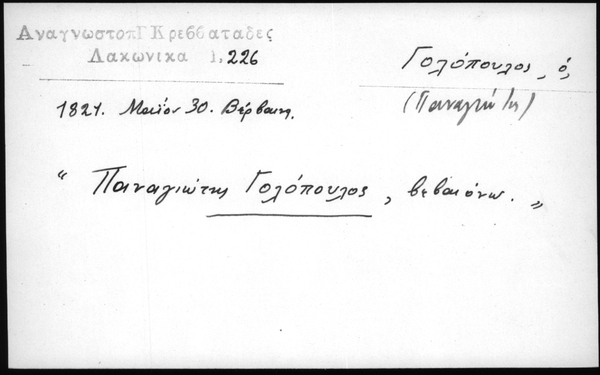 ΑναγνωστοπΓΚρεββαταδες
Λακωνικα 1, 226
Γολόπουλος, ὁ,
(Παναγιώτης)
1821. Μαΐου 30. Βέρβαινα.
“ Παναγιώτης Γολόπουλος, βεβαιόνω. „